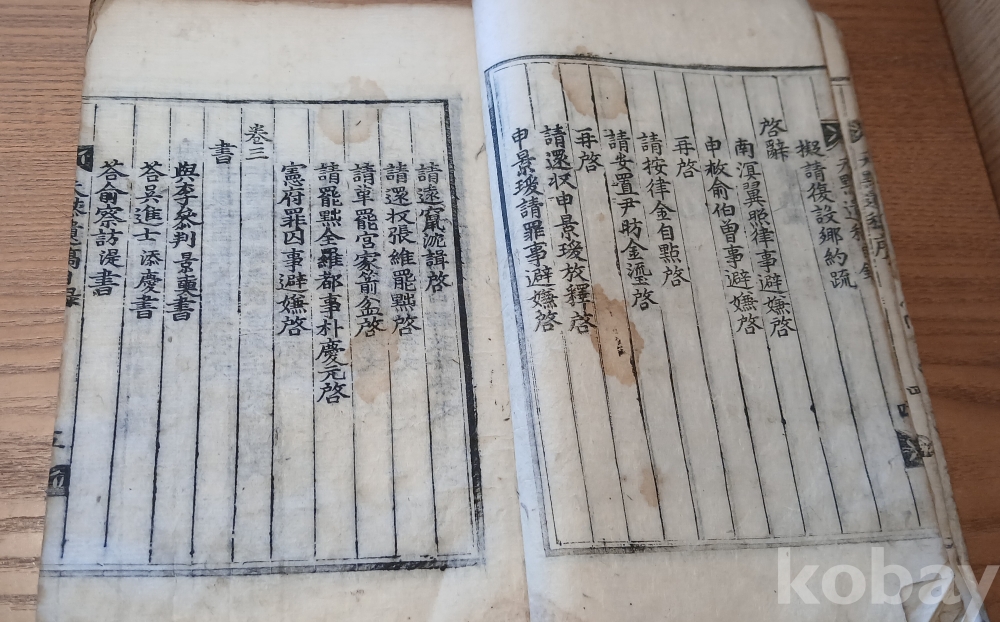 擬請復設鄕約疏
啓辭
南溟翼照律事避嫌啓
申救俞伯曾事避嫌啓
再啓
請按律金自點啓
請安置尹昉金瑬啓
再啓
請還収申景瑗放釋啓
申景瑗請罪事避嫌啓
請遠竄沈諿啓
請還収張維罷黜啓
請革罷宫家箭盆啓
請罷黜全羅都事朴慶元啓
憲府罪囚事避嫌啓
卷三
書
與李叅判景奭書
答吳進士添慶書
答俞察訪湜書
遺稿目錄
kobay